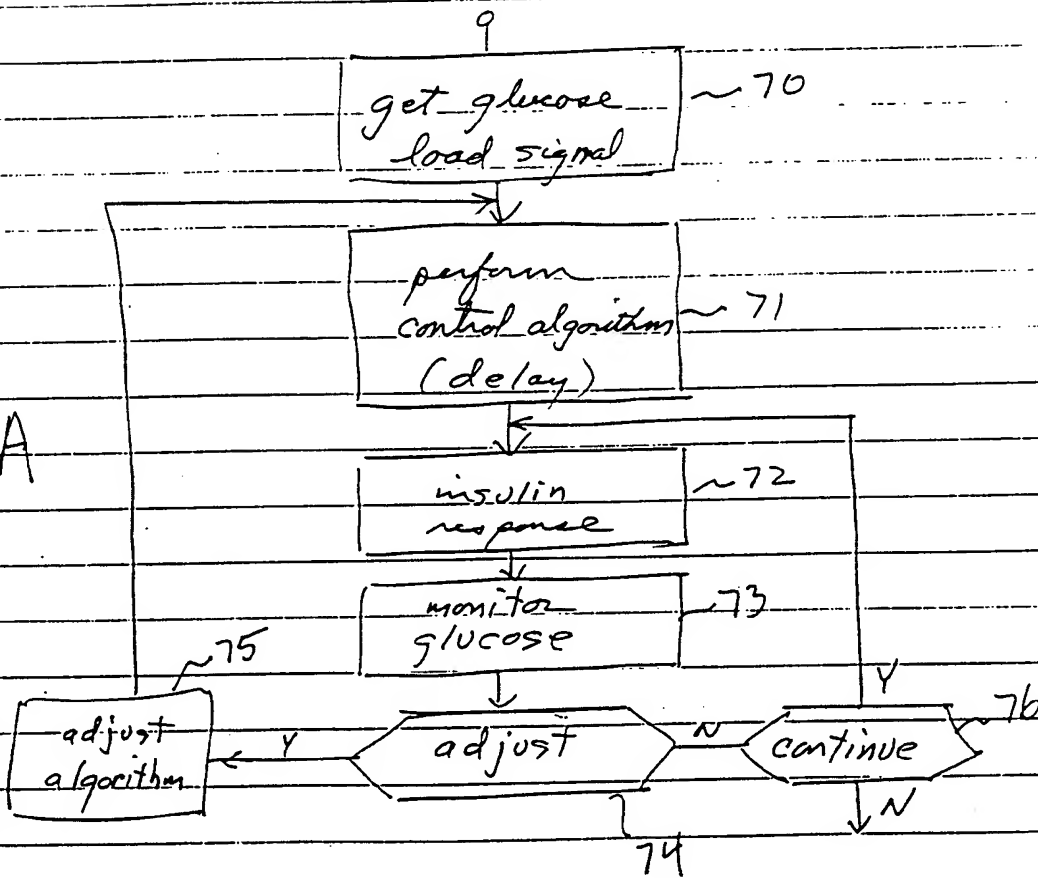 get glucose
load signal
70
perform
control algorithm
(delay)
71
A
insulin
response
72
monitor
glucose
73
75
adjust
algorithm
Y
adjust
74
N
continue
76
Y
N